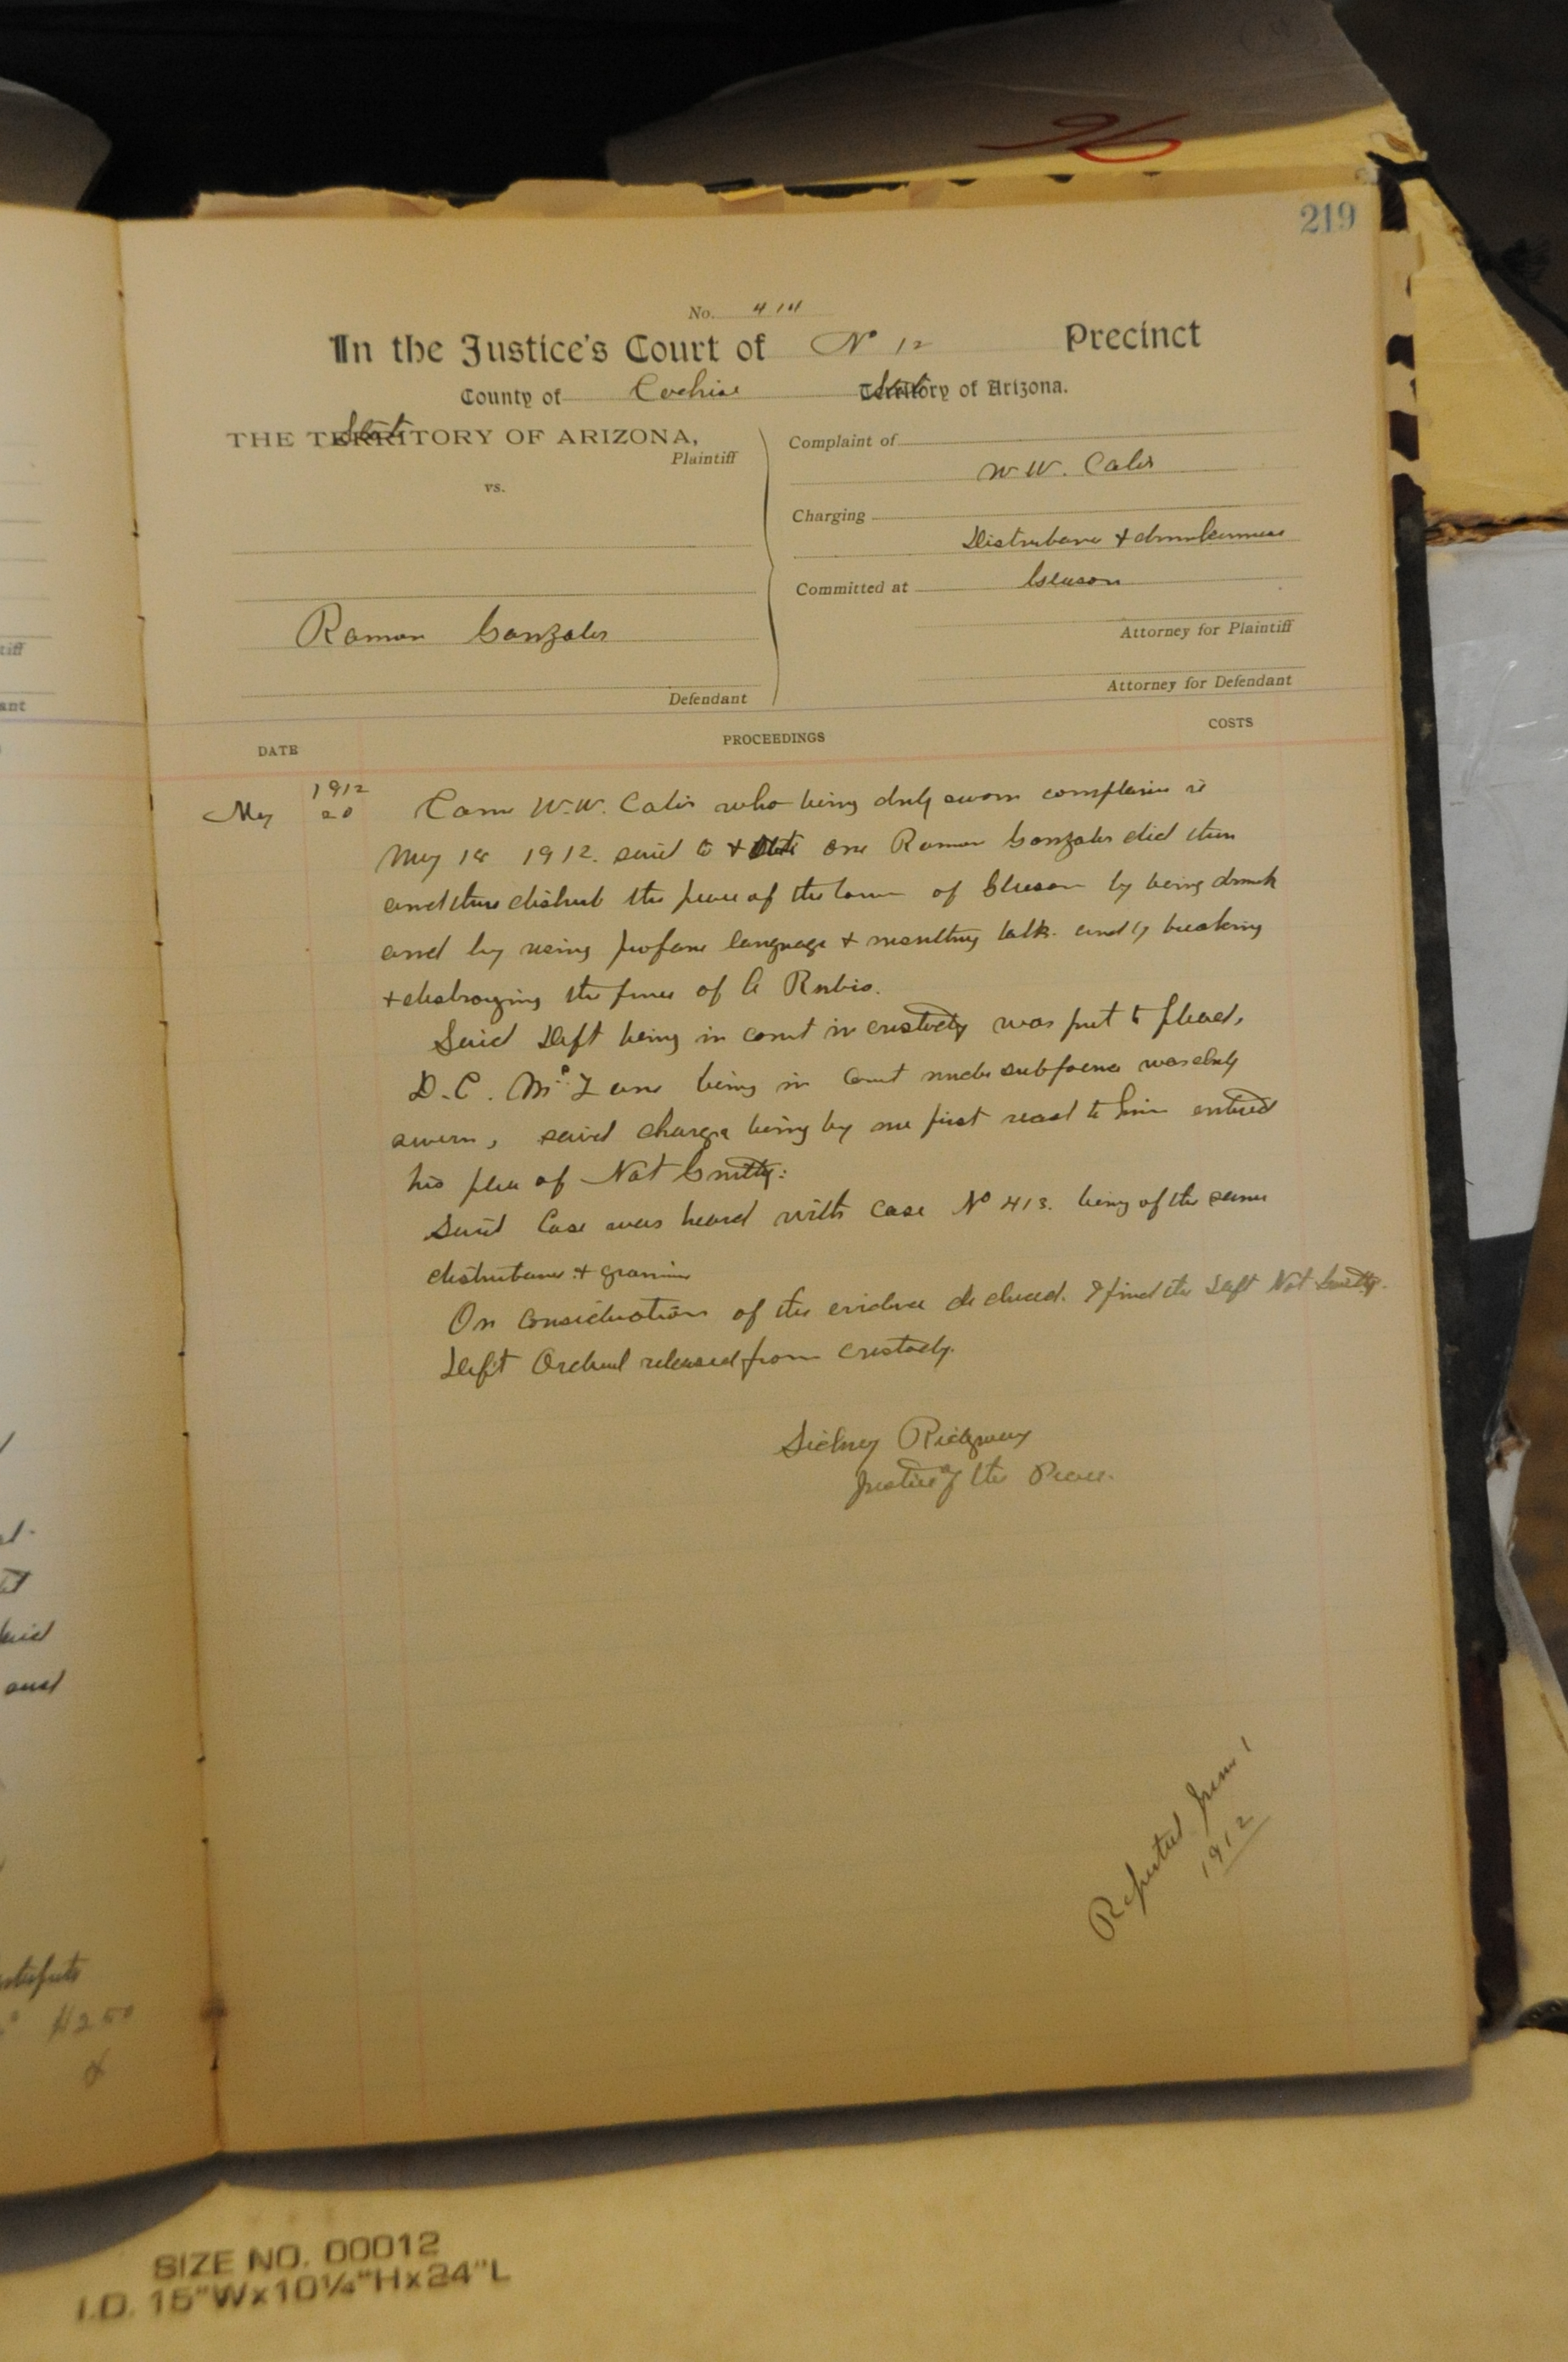 96
219
No. 414
In the Justice's Court of No 12 Precinct
County of Cochise State Territory of Arizona.
State
THE TERRITORY OF ARIZONA,
Plaintiff
vs.
Ramon Gonzales
Defendant
Complaint of
W. W. Cates
Charging
Disturbance & drunkenness
Committed at Gleeson
Attorney for Plaintiff
Attorney for Defendant
DATE PROCEEDINGS COSTS
1912
May 20 Came W. W. Cates who being duly sworn complains
May 18 1912. said one Ramon Gonzales did then
and there disturb the peace of the town of Gleeson by being drunk
and by using profane language & insulting talk. and by breaking
& destroying the fence of Rubio.
Said Deft being in court in custody was put to plead,
D. C. being in Court under subpoena was duly
sworn, said charge being by me first read to him entered
his plea of Not Guilty:
Said Case was heard with Case No 413. being of the same
disturbance &
On consideration of the evidence deduced. I find the Deft Not Guilty.
Deft Ordered released from custody.
Sidney Ridgway
Justice of the Peace.
Reported June 1
1912
tiff
ant
and
$2.50
SIZE NO. 00012
I.D. 15"Wx10¼"Hx24"L